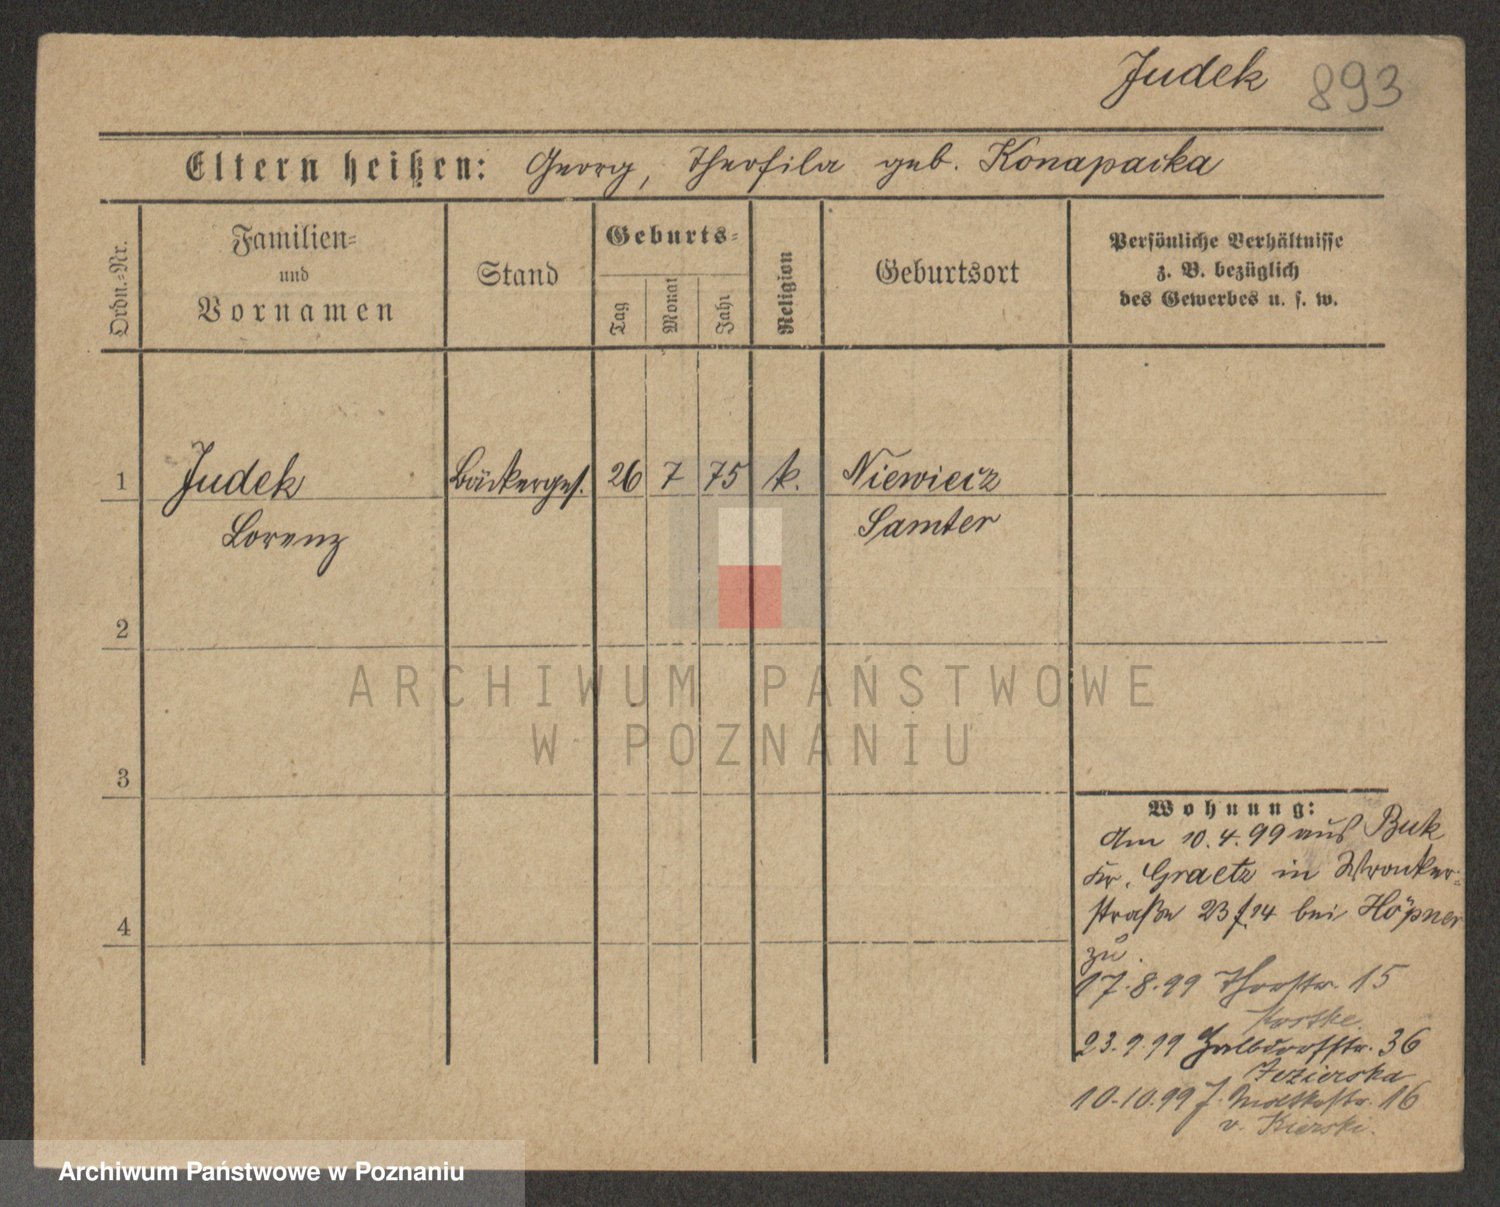 Judek 893
Eltern heißen: Georg, Theofila geb. Konapacka
Ordn.-Nr.
Familien-
und
Vornamen
Stand
Geburts-
Tag
Monat
Jahr
Religion
Geburtsort
Persönliche Verhältnisse
z. B. bezüglich
des Gewerbes u. s. w.
1 Judek Bäckerges. 26 7 75 k. Niewiecz
Lorenz Samter
2
ARCHIWUM PAŃSTWOWE
W POZNANIU
3
Wohnung:
Am 10.4.99 aus Buk
Kr. Graetz in Wronker-
4
straße 23/24 bei Höpner
zu.
17.8.99 Thorstr. 15
23.9.99 Halbdorfstr. 36
Jezierska
10.10.99 Moltkestr. 16
v. Kierski.
Archiwum Państwowe w Poznaniu